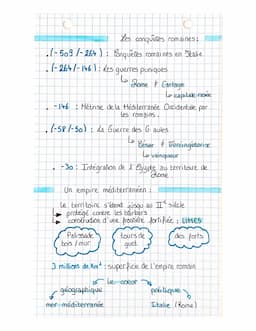 Les conquêtes romaines :
. (-509/-264) : Conquêtes romaines en Italie.
. (-264/-146) : Les guerres puniques
↳ Rome ≠ Carthage
↳ capitale rasée
. -146 : Maîtrise de la Méditerranée Occidentale par
les romains.
. (-58/-50) : La Guerre des Gaules
↳ César ≠ Vercingétorix
↳ vainqueur
. -30 : Intégration de l'Egypte au territoire de
Rome.
Un empire méditerranéen :
Le territoire s'étend jusqu'au IIe siècle
↳ protégé contre les barbares
↳ construction d'une frontière fortifiée : LIMES
Palissade
bois / mur
tours de
guet
des forts
3 millions de Km² : superficie de l'empire romain
Le cœur
géographique
politique
mer méditerranée
Italie (Rome)